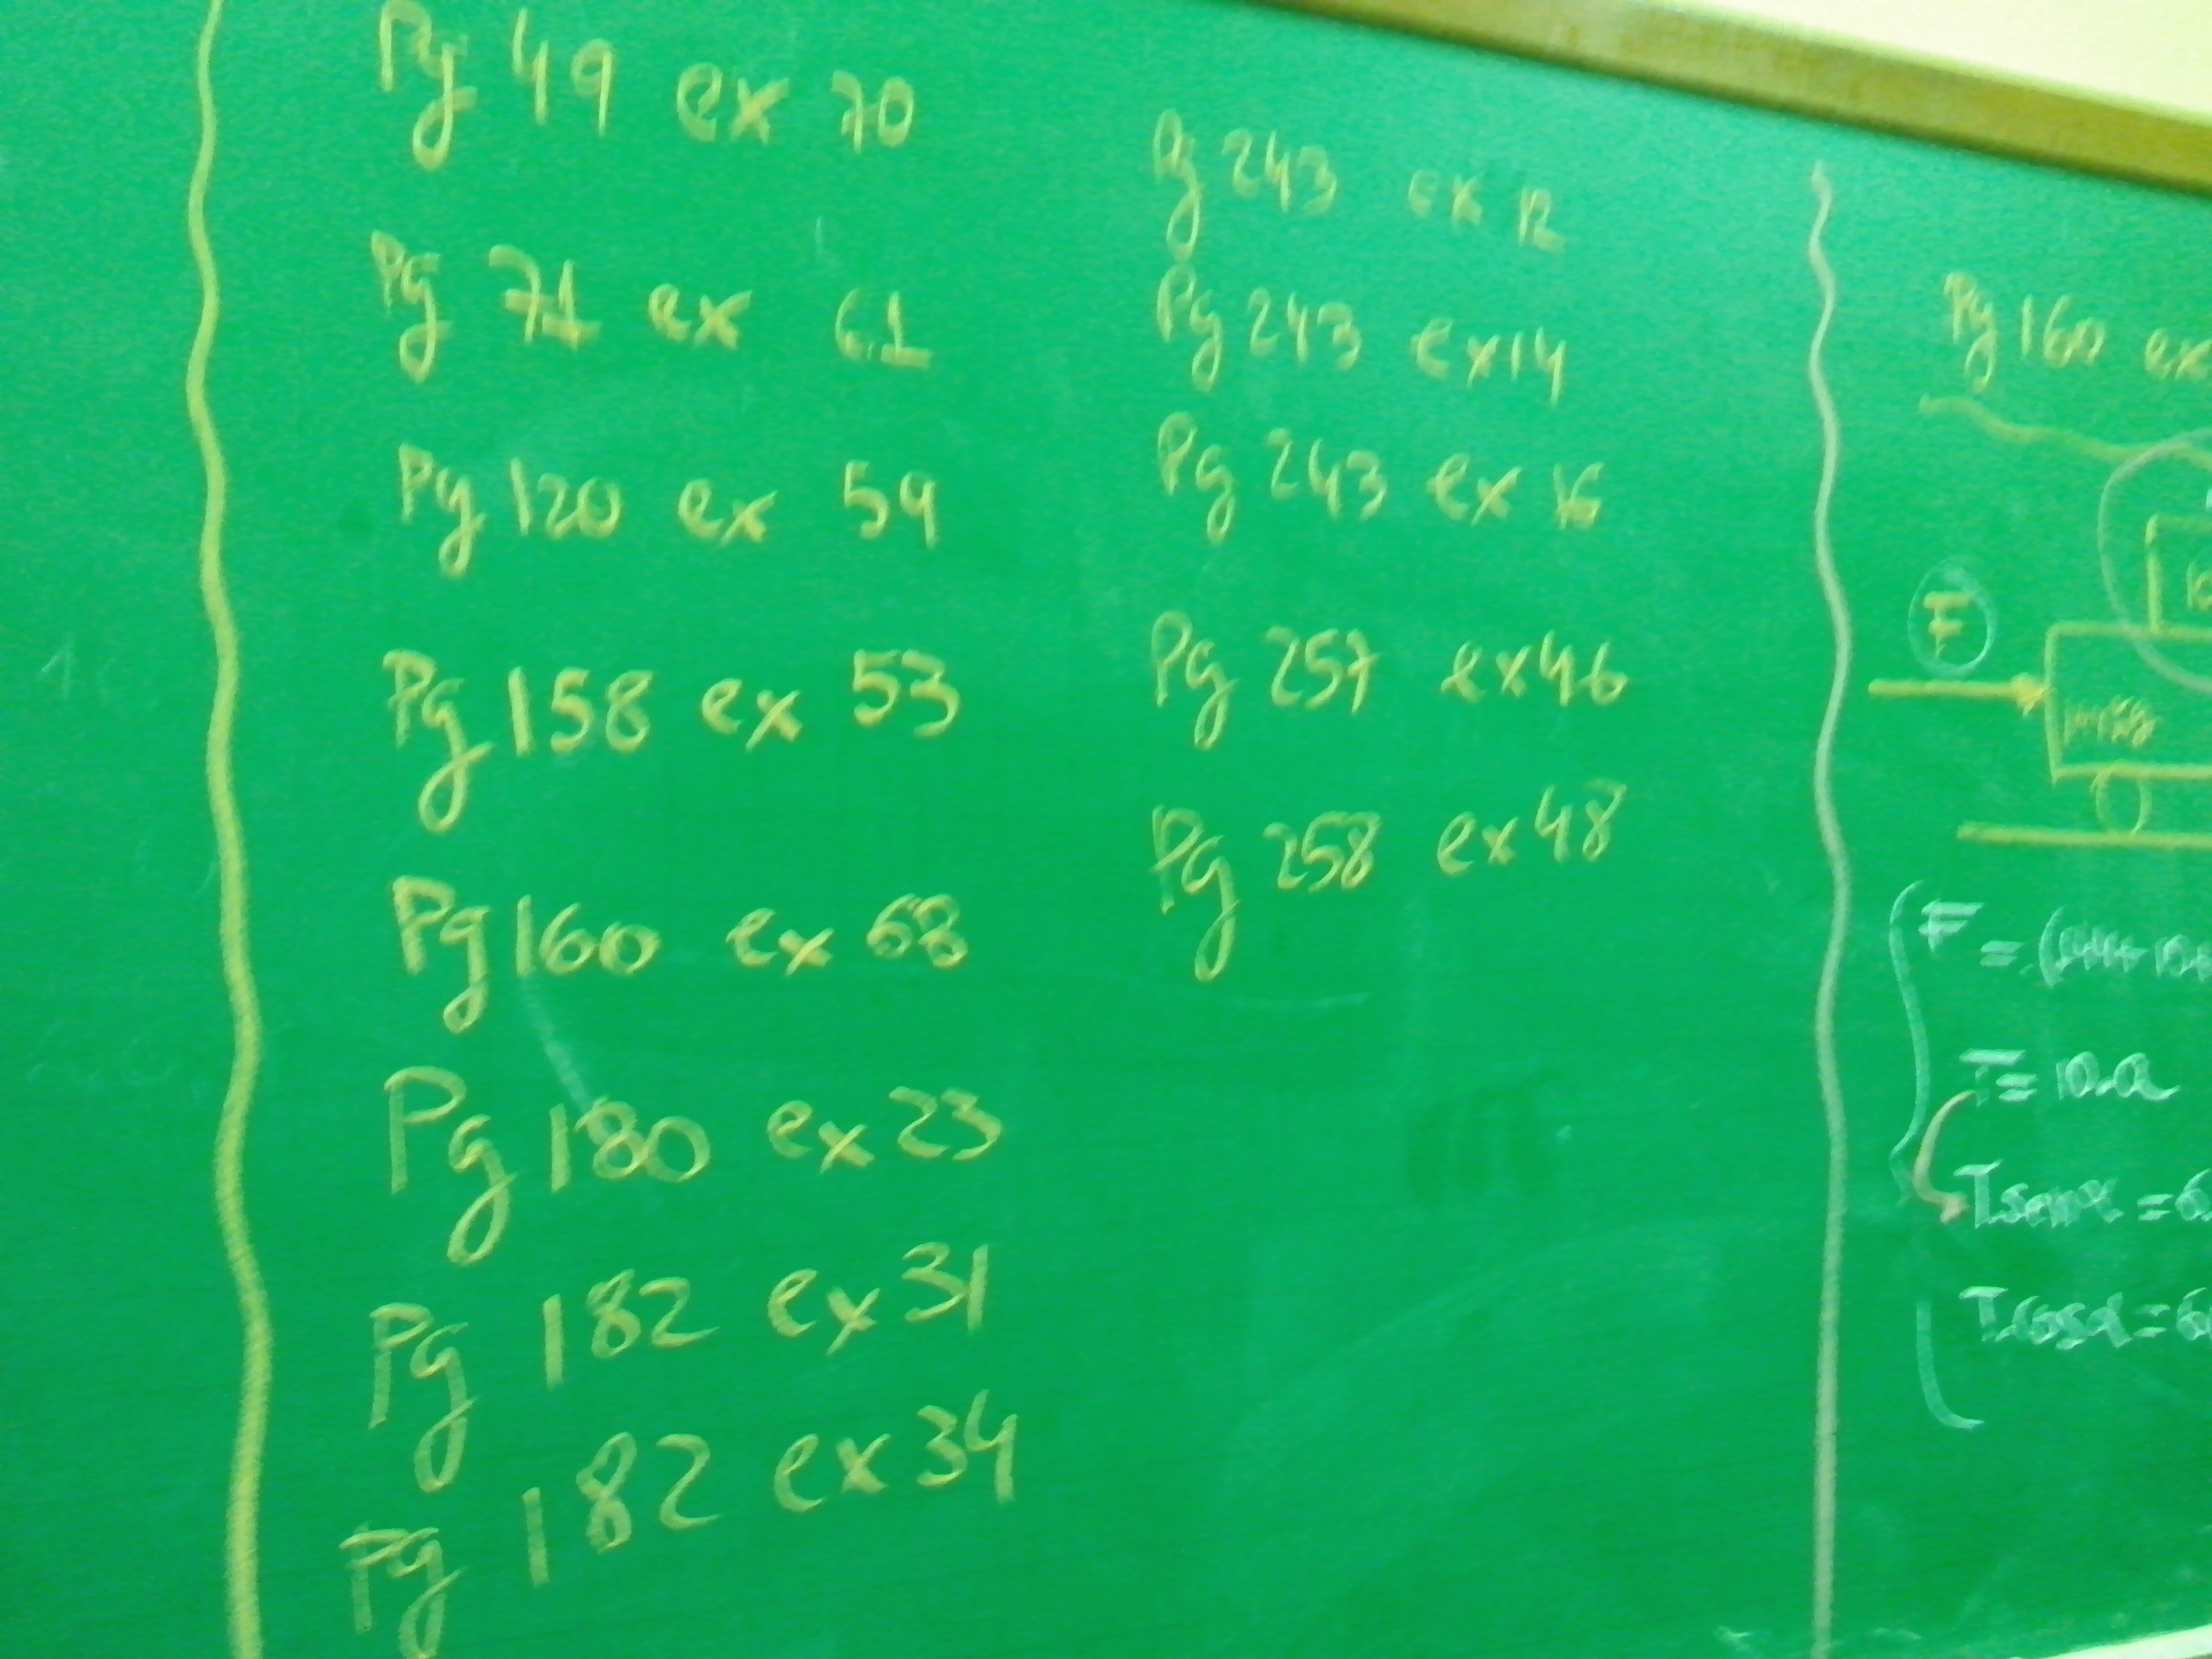 Pg 49 ex 70
Pg 71 ex 61
Pg 120 ex 59
Pg 158 ex 53
Pg 160 ex 68
Pg 180 ex 23
Pg 182 ex 31
Pg 182 ex 34
Pg 243 ex 12
Pg 243 ex 14
Pg 243 ex 16
Pg 257 ex 46
Pg 258 ex 48
Pg 160 ex
F
F = (144+
T = 10.a
T.senα = 6
T.cosα = 6